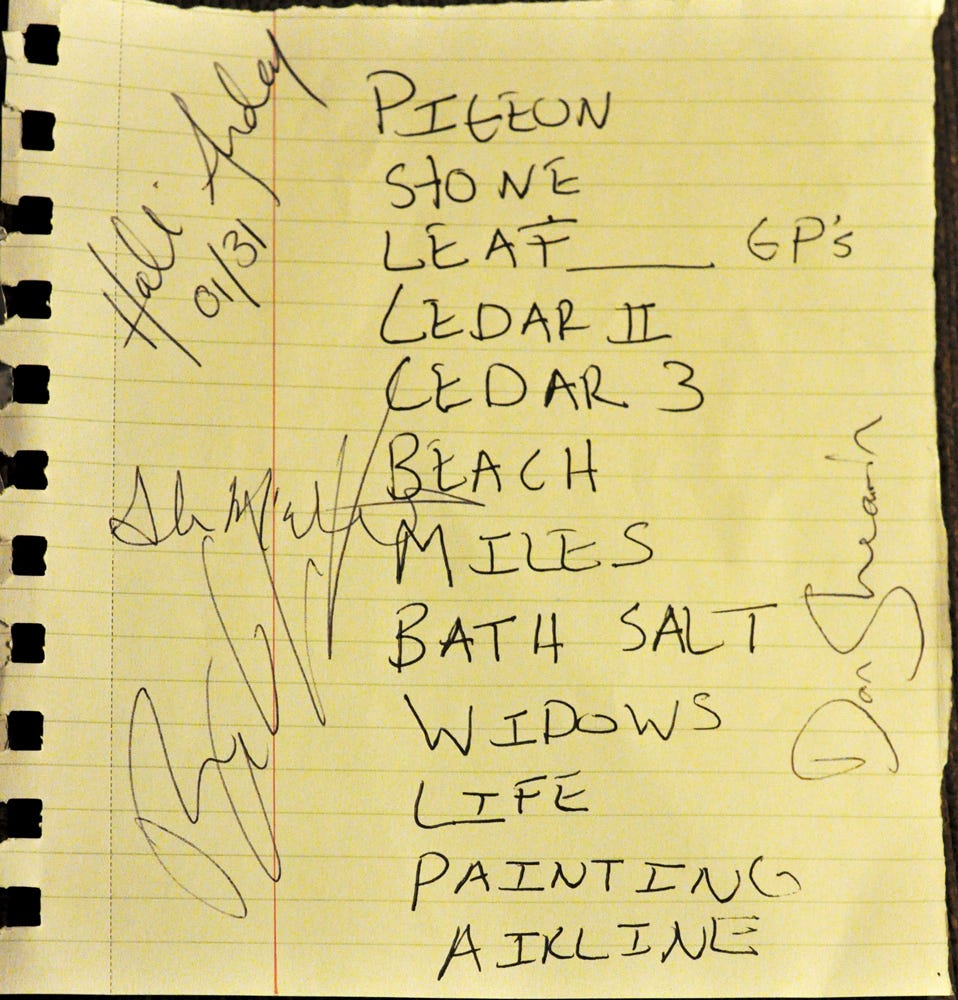 PIGEON
STONE
LEAF____ GP's
CEDAR II
CEDAR 3
BEACH
MILES
BATH SALT
WIDOWS
LIFE
PAINTING
AIRLINE
01/31
Dan Shearin